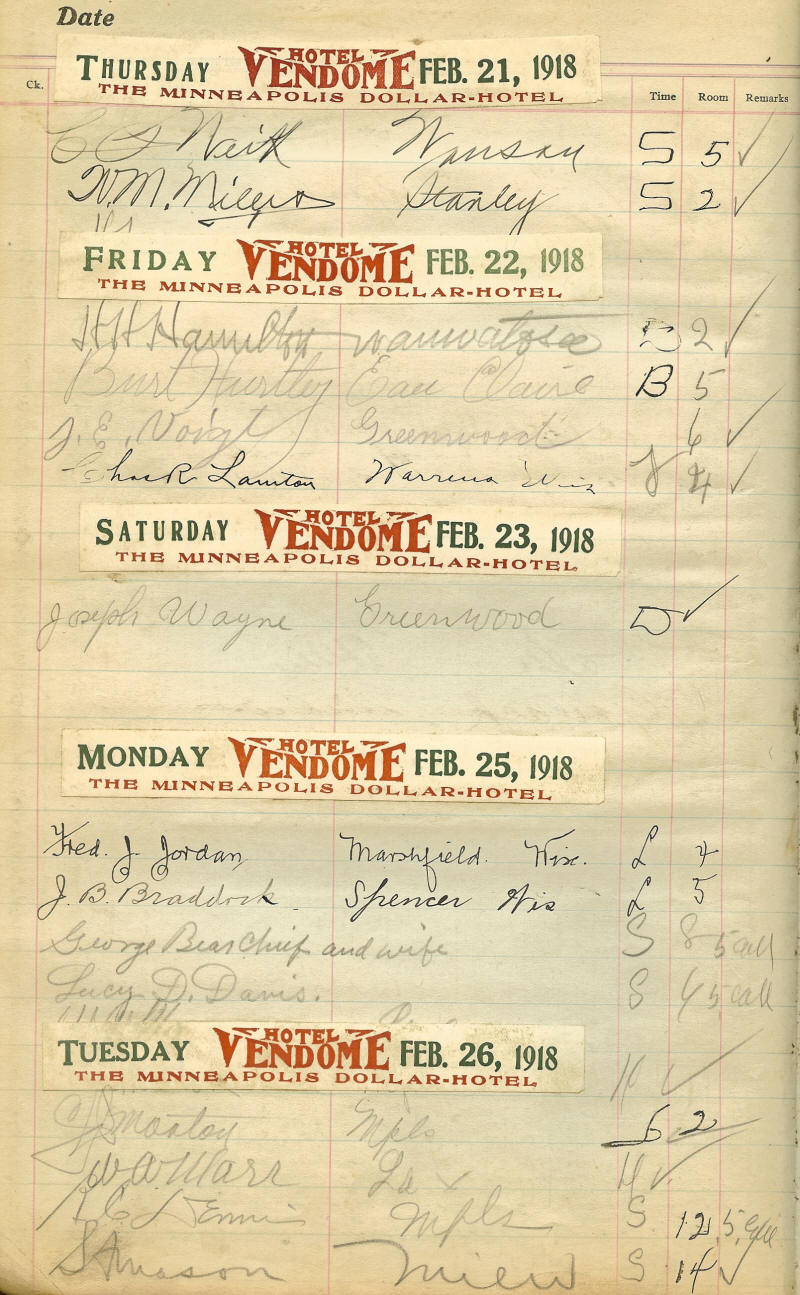 Date
THURSDAY HOTEL VENDOME FEB. 21, 1918
THE MINNEAPOLIS DOLLAR-HOTEL
Ck. Time Room Remarks
S 5 ✓
W. M. Stanley S 2 ✓
FRIDAY HOTEL VENDOME FEB. 22, 1918
THE MINNEAPOLIS DOLLAR-HOTEL
HH Hamilton 2 ✓
Burt Hartley Eau Claire B 5
J. E. Voigt Greenwood 6 ✓
Chas R Lamton Warrens Wis 4 ✓
SATURDAY HOTEL VENDOME FEB. 23, 1918
THE MINNEAPOLIS DOLLAR-HOTEL
Joseph Wayne Greenwood D ✓
MONDAY HOTEL VENDOME FEB. 25, 1918
THE MINNEAPOLIS DOLLAR-HOTEL
Fred. J. Jordan Marshfield. Wis. L 4
J. B. Braddock. Spencer Wis L 5
George Bear Chief and wife S 8 5 call
Lucy D. Davis. S 6 5 call
TUESDAY HOTEL VENDOME FEB. 26, 1918
THE MINNEAPOLIS DOLLAR-HOTEL
✓
Morton Mpls 2
W A Marr La x ✓
Mpls S 12
S 14 ✓